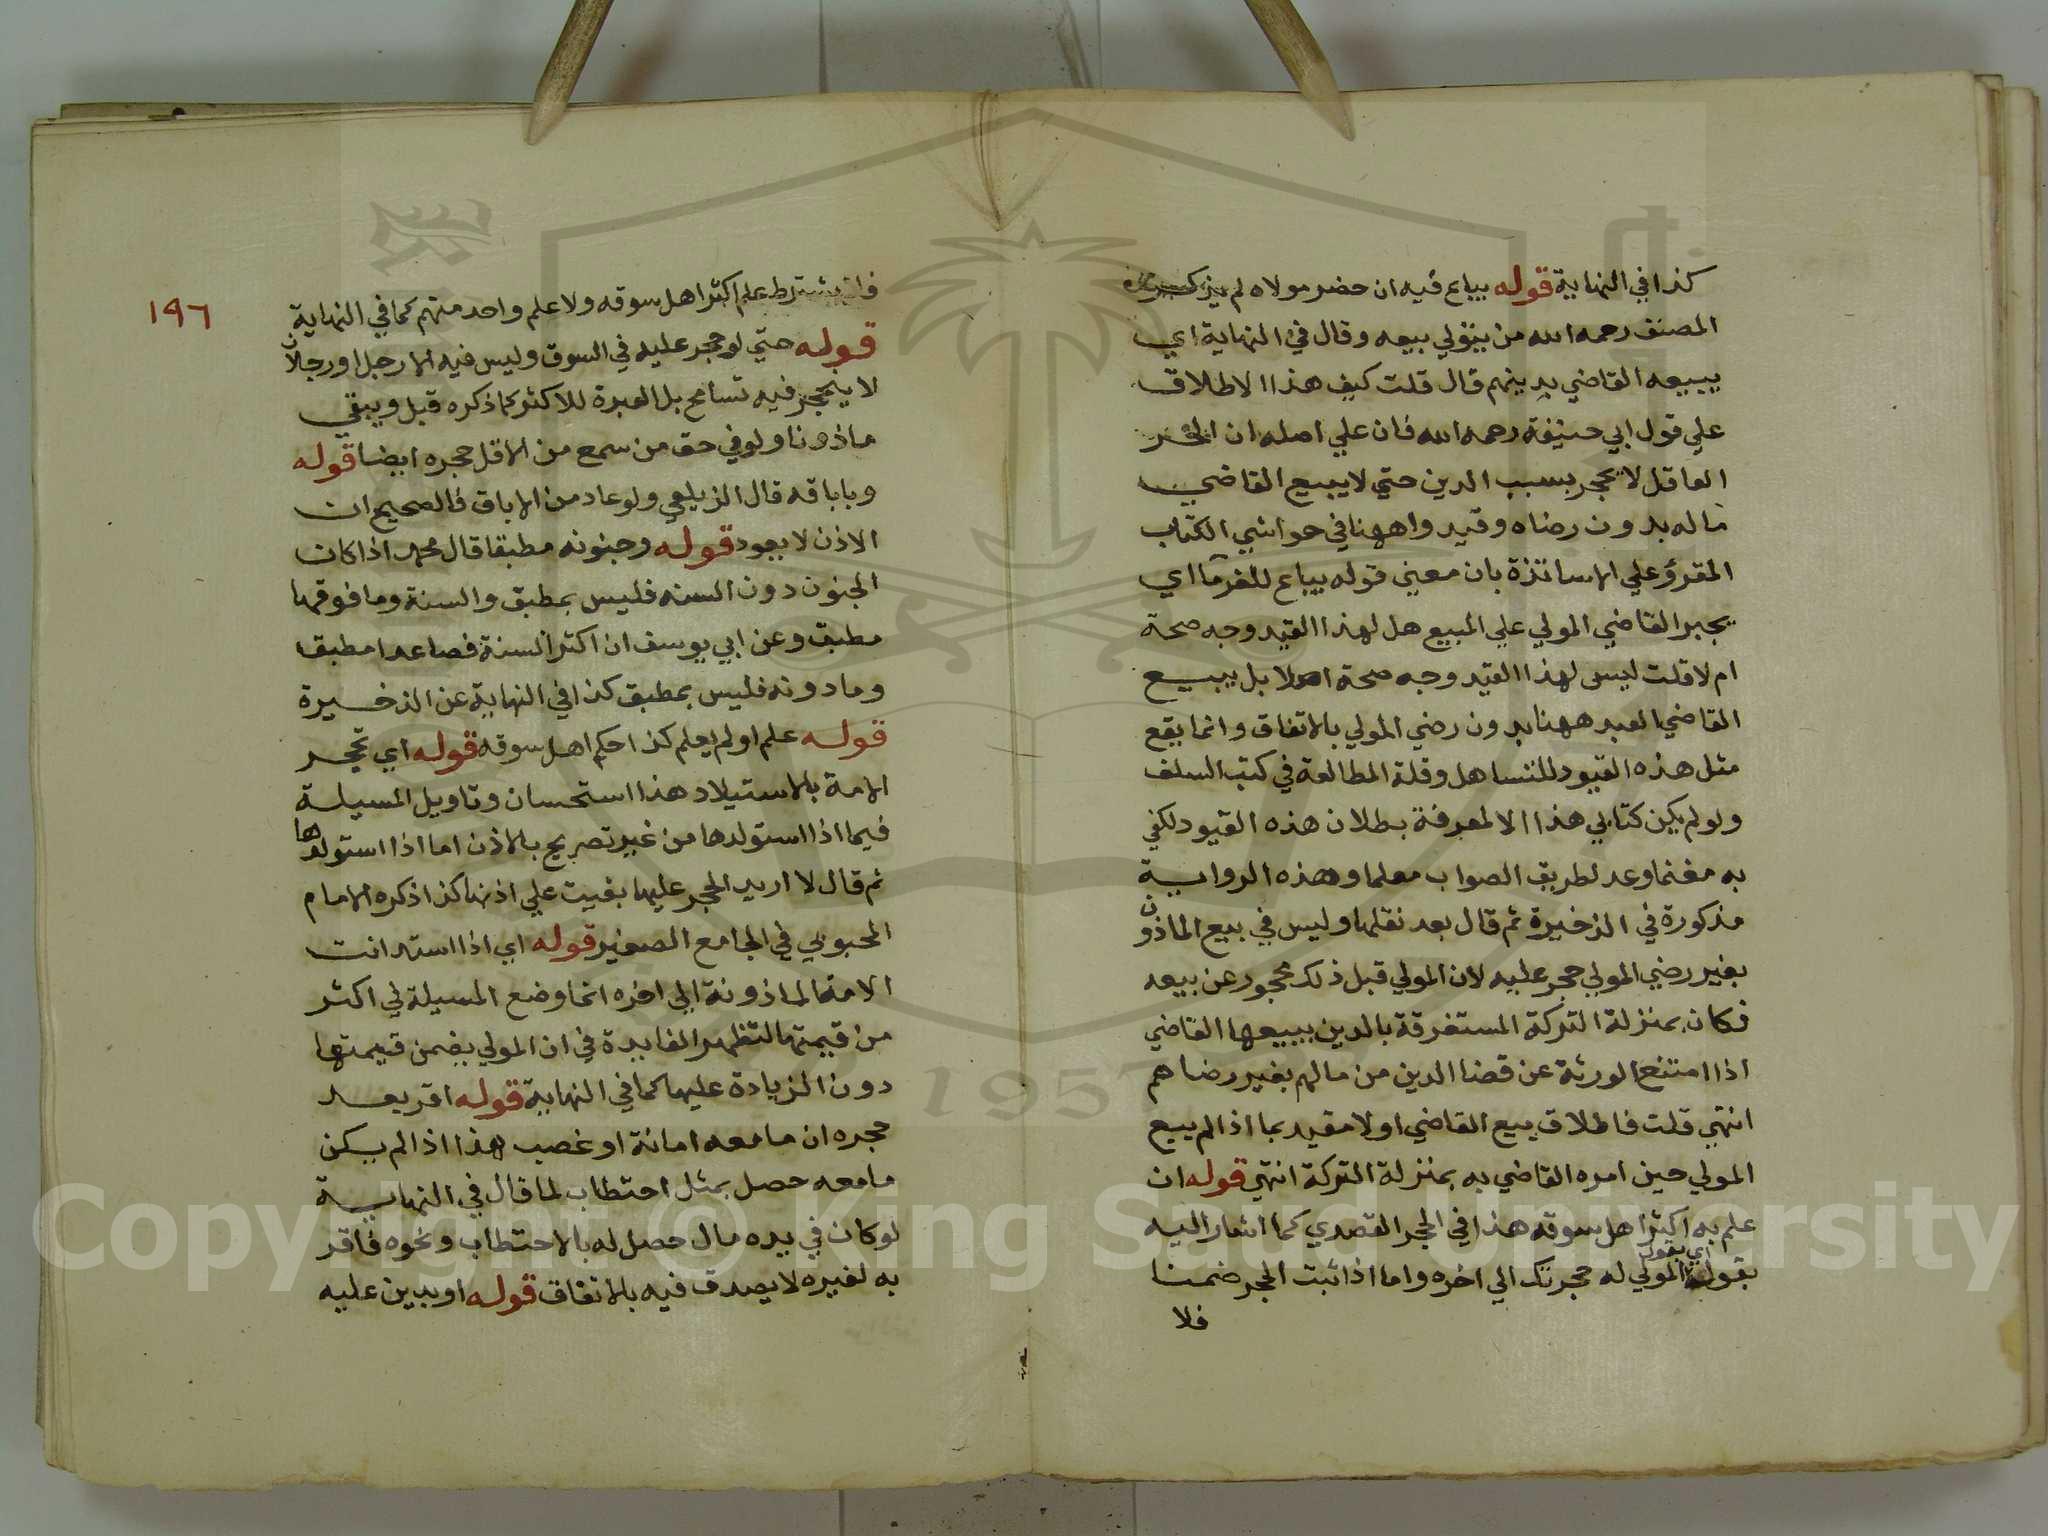 كذا في النهاية قوله يباع فيه ان حضر مولاه لم يذكر
المصنف رحمه الله من يتولي بيعه وقال في النهاية اي
يبيعه القاضي بدينهم قال قلت كيف هذا الاطلاق
علي قول ابي حنيفة رحمه الله فان علي اصله ان الحر
العاقل لا يحجر بسبب الدين حتي لا يبيع القاضي
ماله بدون رضاه وقيدوا ههنا في حواشي الكتاب
المقرؤ علي الاساتذة بان معني قوله يباع للغرمآ اي
يجبر القاضي المولي علي المبيع هل لهذا القيد وجه صحة
ام لا قلت ليس لهذا القيد وجه صحة اصلا بل يبيع
القاضي العبد ههنا بدون رضي المولي بالاتفاق وانما يقع
مثل هذه القيود للتساهل وقلة المطالعة في كتب السلف
ولو لم يكن كتابي هذا الا لمعرفة بطلان هذه القيود لكفي
به مغنما وعد لطريق الصواب معلما وهذه الرواية
مذكورة في الذخيرة ثم قال بعد نقلها وليس في بيع الماذون
بغير رضي المولي حجر عليه لان المولي قبل ذلك محجور عن بيعه
فكان بمنزلة التركة المستغرقة بالدين يبيعها القاضي
اذا امتنع الورثة عن قضا الدين من مالهم بغير رضاهم
انتهي قلت فاطلاق بيع القاضي اولا مقيد بما اذا لم يبع
المولي حين امره القاضي به بمنزلة التركة انتهي قوله ان
علم به اكثر اهل سوقه هذا في الحجر القصدي كما اشار اليه
اي بقول
بقوله المولي له حجرتك الي اخره واما اذا ثبت الحجر ضمنا
فلا
١٩٦
فلا يشترط علم اكثر اهل سوقه ولا علم واحد منهم كما في النهاية
قوله حتي لو حجر عليه في السوق وليس فيه الا رجل او رجلان
لا ينحجر فيه تسامح بل العبرة للاكثر كما ذكره قبل ويبقي
ماذونا ولو في حق من سمع من الاقل حجره ايضا قوله
وباباقه قال الزيلعي ولو عاد من الاباق فالصحيح ان
الاذن لا يعود قوله وجنونه مطبقا قال محمد اذا كان
الجنون دون السنه فليس بمطبق والسنة وما فوقها
مطبق وعن ابي يوسف ان اكثر السنة فصاعدا مطبق
وما دونه فليس بمطبق كذا في النهاية عن الذخيرة
قوله علم او لم يعلم كذا حكم اهل سوقه قوله اي تحجر
الامة بالاستيلاد هذا استحسان وتاويل المسيلة
فيما اذا استولدها من غير تصريح بالاذن اما اذا استولدها
ثم قال لا اريد الحجر عليها بقيت علي اذنها كذا ذكره الامام
المحبوبي في الجامع الصغير قوله اي اذا استدانت
الامة الماذونة الي اخره انما وضع المسيلة في اكثر
من قيمتها لتظهر الفايدة في ان المولي يضمن قيمتها
دون الزيادة عليها كما في النهاية قوله اقر بعد
حجره ان ما معه امانة او غصب هذا اذا لم يكن
ما معه حصل بمثل احتطاب لما قال في النهاية
لو كان في يده مال حصل له بالاحتطاب ونحوه فاقر
به لغيره لا يصدق فيه بالاتفاق قوله او بدين عليه
Copyright © King Saud University
1957